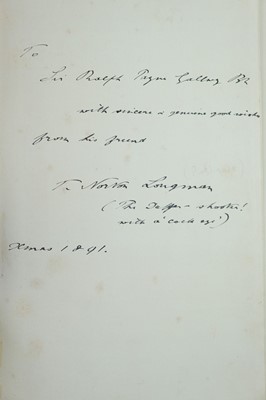 To
Sir Ralph Payne Gallwey Bt
with sincere & genuine good wishes
from his friend
T. Norton Longman
(The Duffer - shooter!
with a 'cock eye')
Xmas 1891.